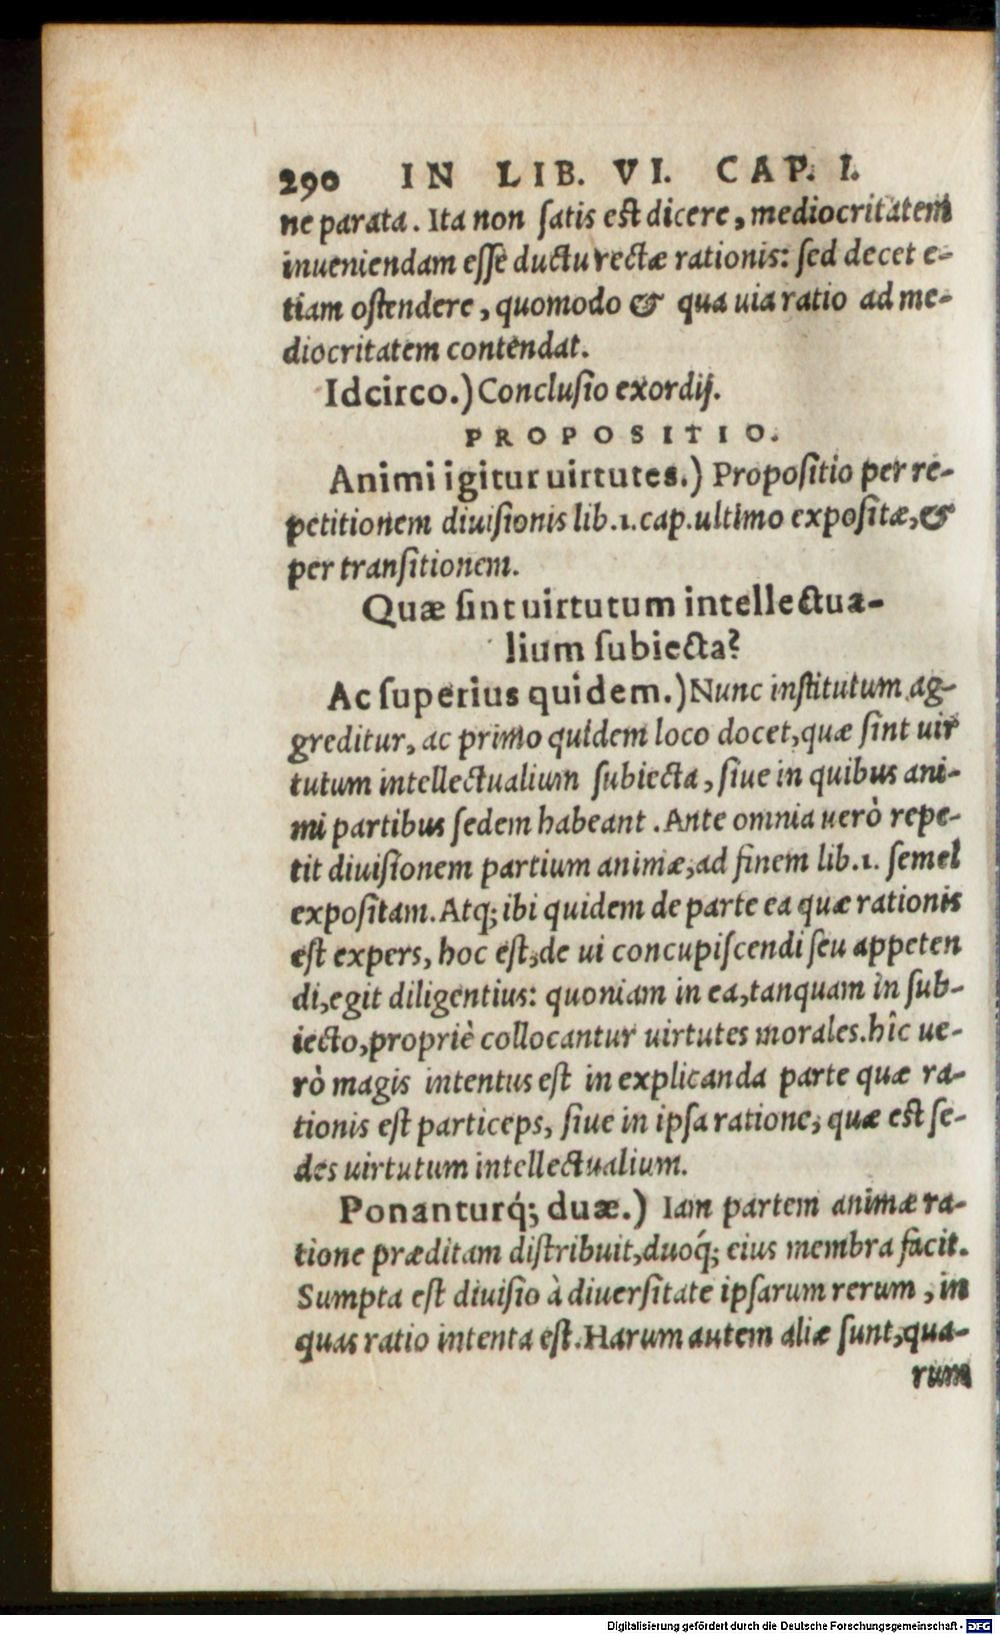 290 IN LIB. VI. CAP. I.
ne parata. Ita non ſatis est dicere, mediocritatem
inueniendam eſſe ductu rectæ rationis: ſed decet e-
tiam oſtendere, quomodo & qua uia ratio ad me-
diocritatem contendat.
Idcirco.) Concluſio exordij.
PROPOSITIO.
Animi igitur uirtutes.) Propoſitio per re-
petitionem diuiſionis lib.1.cap.ultimo expoſitæ,&
per tranſitionem.
Quæ ſint uirtutum intellectua-
lium ſubiecta?
Ac ſuperius quidem.) Nunc inſtitutum ag-
greditur, ac primo quidem loco docet,quæ ſint uir
tutum intellectualium ſubiecta, ſiue in quibus ani-
mi partibus ſedem habeant. Ante omnia uerò repe-
tit diuiſionem partium animæ,ad finem lib.1. ſemel
expoſitam. Atq; ibi quidem de parte ea quæ rationis
eſt expers, hoc eſt,de ui concupiſcendi ſeu appeten
di,egit diligentius: quoniam in ea,tanquam in ſub-
iecto,propriè collocantur uirtutes morales.hîc ue-
rò magis intentus eſt in explicanda parte quæ ra-
tionis eſt particeps, ſiue in ipſa ratione, quæ eſt ſe-
des uirtutum intellectualium.
Ponanturq́; duæ.) Iam partem animæ ra-
tione præditam diſtribuit,duoq́; eius membra facit.
Sumpta eſt diuiſio à diuerſitate ipſarum rerum, in
quas ratio intenta eſt. Harum autem aliæ ſunt,qua-
rum
Digitalisierung gefördert durch die Deutsche Forschungsgemeinschaft - DFG